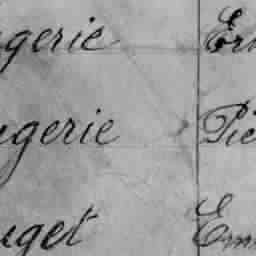 gerie Ern
ngerie Pie
uget Emm